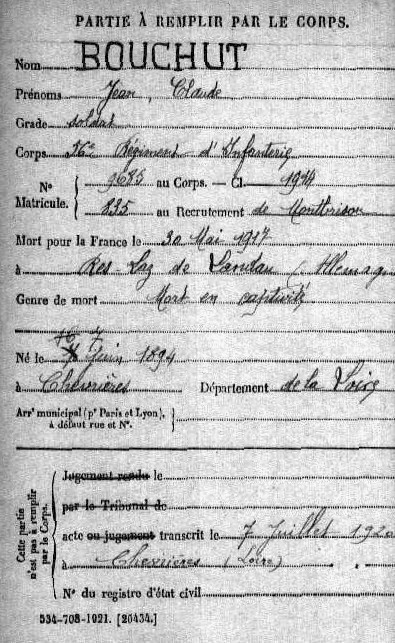 PARTIE À REMPLIR PAR LE CORPS.
Nom BOUCHUT
Prénoms Jean, Claude
Grade soldat
Corps 56e Régiment d'Infanterie
No Matricule. 9685 au Corps. — Cl. 1914
835 au Recrutement de Montbrison
Mort pour la France le 30 Mai 1917
à Res-Laz de Landau (Allemag
Genre de mort Mort en captivité
Né le Juin 1894
à Chevrières Département de la Loire
Arrt municipal (pr Paris et Lyon),
à défaut rue et No.
Cette partie
n'est pas à remplir
par le Corps.
Jugement rendu le
par le Tribunal de
acte ou jugement transcrit le 7 Juillet 1920
à Chevrières (Loire)
No du registre d'état civil
534-708-1921. [26434.]